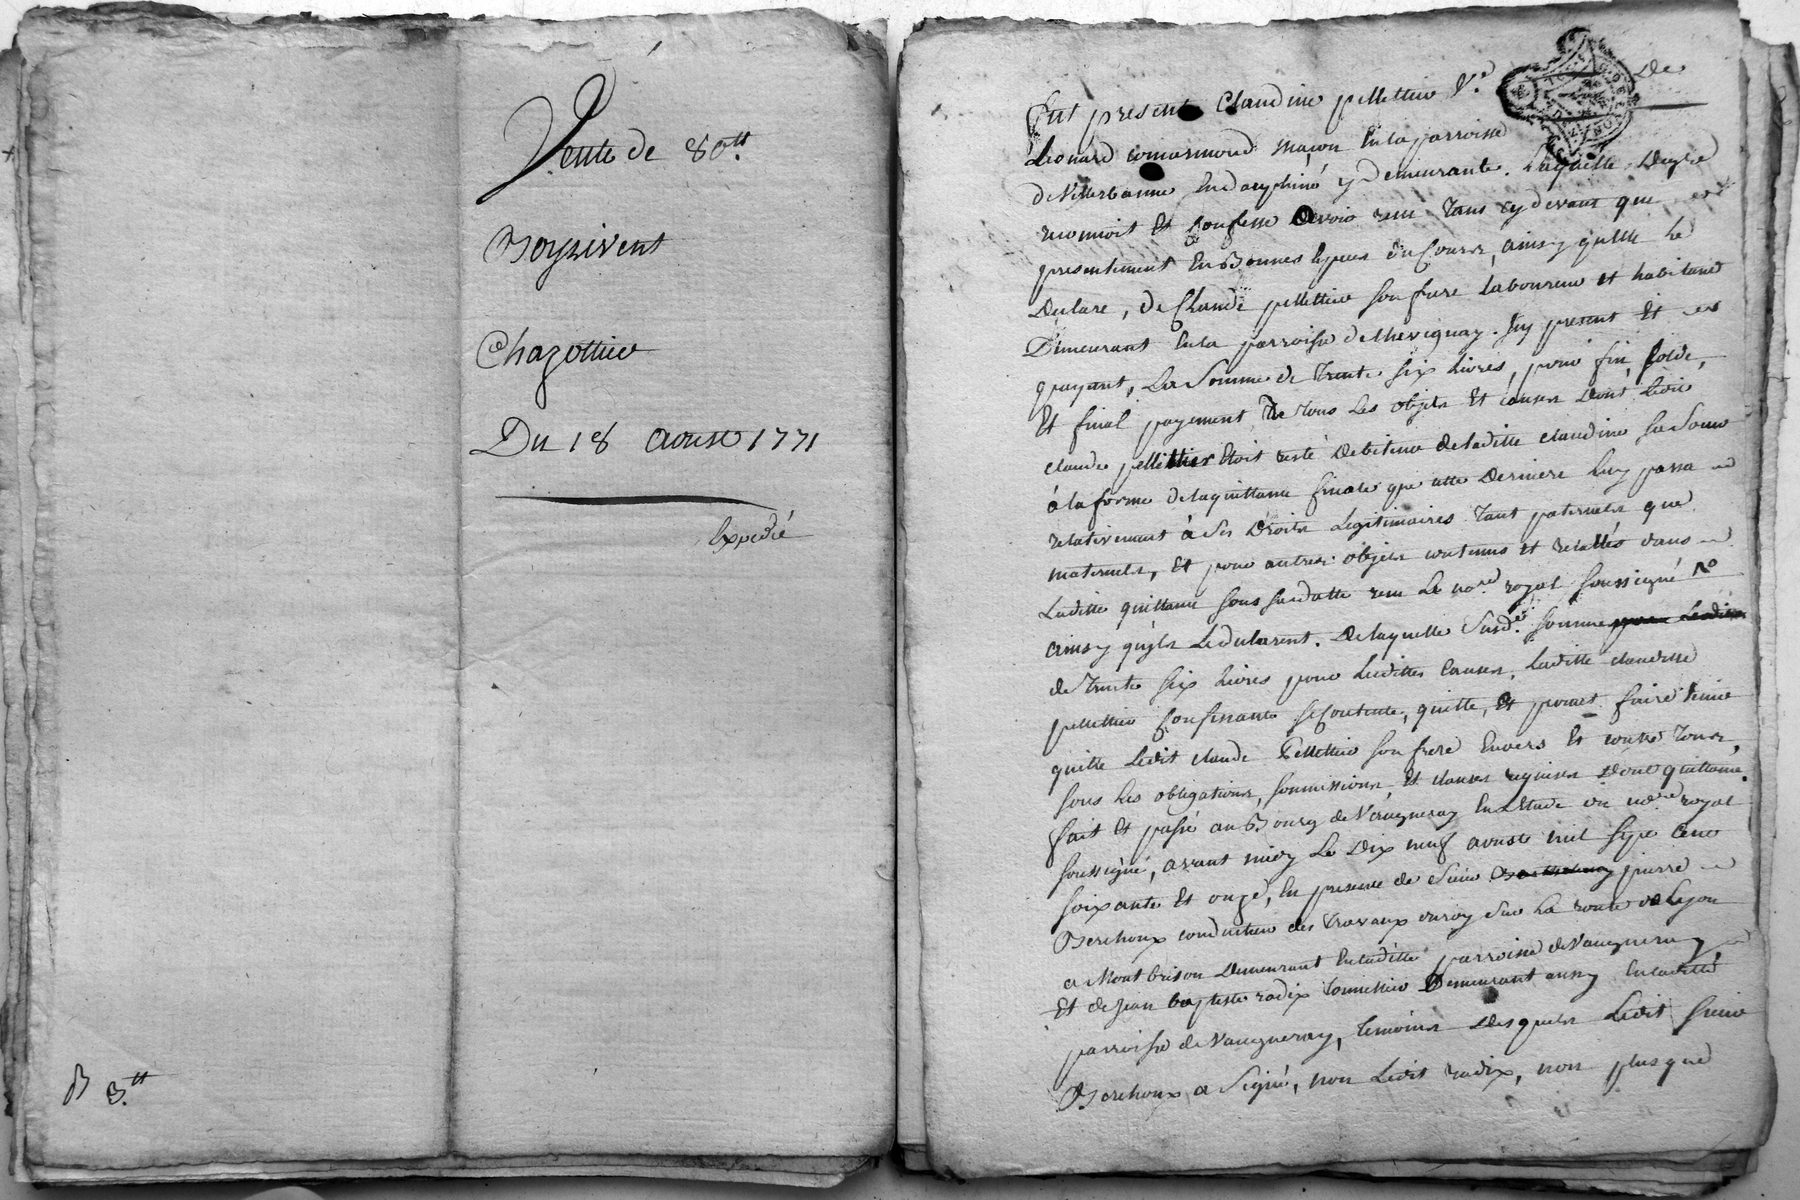 Vente de 80tt
Boyrivent
Chazottier
Du 18 aoust 1771
Expedié
B 3.tt
Fut presente Claudine pellettier V.e De
Leonard comarmond maçon en la parroisse
de Villerbanne En dauphiné y Demeurante. Laquelle De gré
reconnoit Et Confesse avoir reçu tans cy devant que
presentement En Bonnes Especes du Cours, ainsy qu'elle Le
Declare, de Claude pellettier son frere Laboureur et habitant
Demeurant En la parroisse de Thevignay. Icy present Et
payant, La Somme de Trente six Livres, pour fin, solde,
Et final payement De tous Les objets Et causes Dont ledit
claude pellettier Etoit resté Debiteur de laditte claudine sa Sœur
à la forme de la quittance finale que cette Derniere luy passa
relativement à Ses Droits Legitimaires tant paternels que
maternels, Et pour autres objets contenus et relattés dans
Laditte quittance sous sa datte reçu Le no.re royal soussigné
ainsy qu'ils Le declarent. De laquelle Susd.e somme pour Lesdites
de Trente six Livres pour Lesdittes Causes, laditte claudine
pellettier Confessante se Contente, quitte, Et promet faire tenir
quitte Ledit claude Pellettier son frere Envers Et contre Tous,
sous Les obligations, soumissions, Et clauses requises Dont quittance.
fait Et passé au Bourg de Vaugneray En L'Etude du no.re royal
soussigné, avant midy Le Dix neuf aouste mil sept Cent
soixante Et onze, En presence de Sieur pierre
Berchoux conducteur des travaux du roy sur La route de Lyon
a Montbrison Demeurant En laditte parroisse de Vaugneray
Et de Jean baptiste radix Demeurant aussy En laditte
parroisse de Vaugneray, temoins Desquels Ledit sieur
Berchoux a signé, non Ledit radix, non plus que